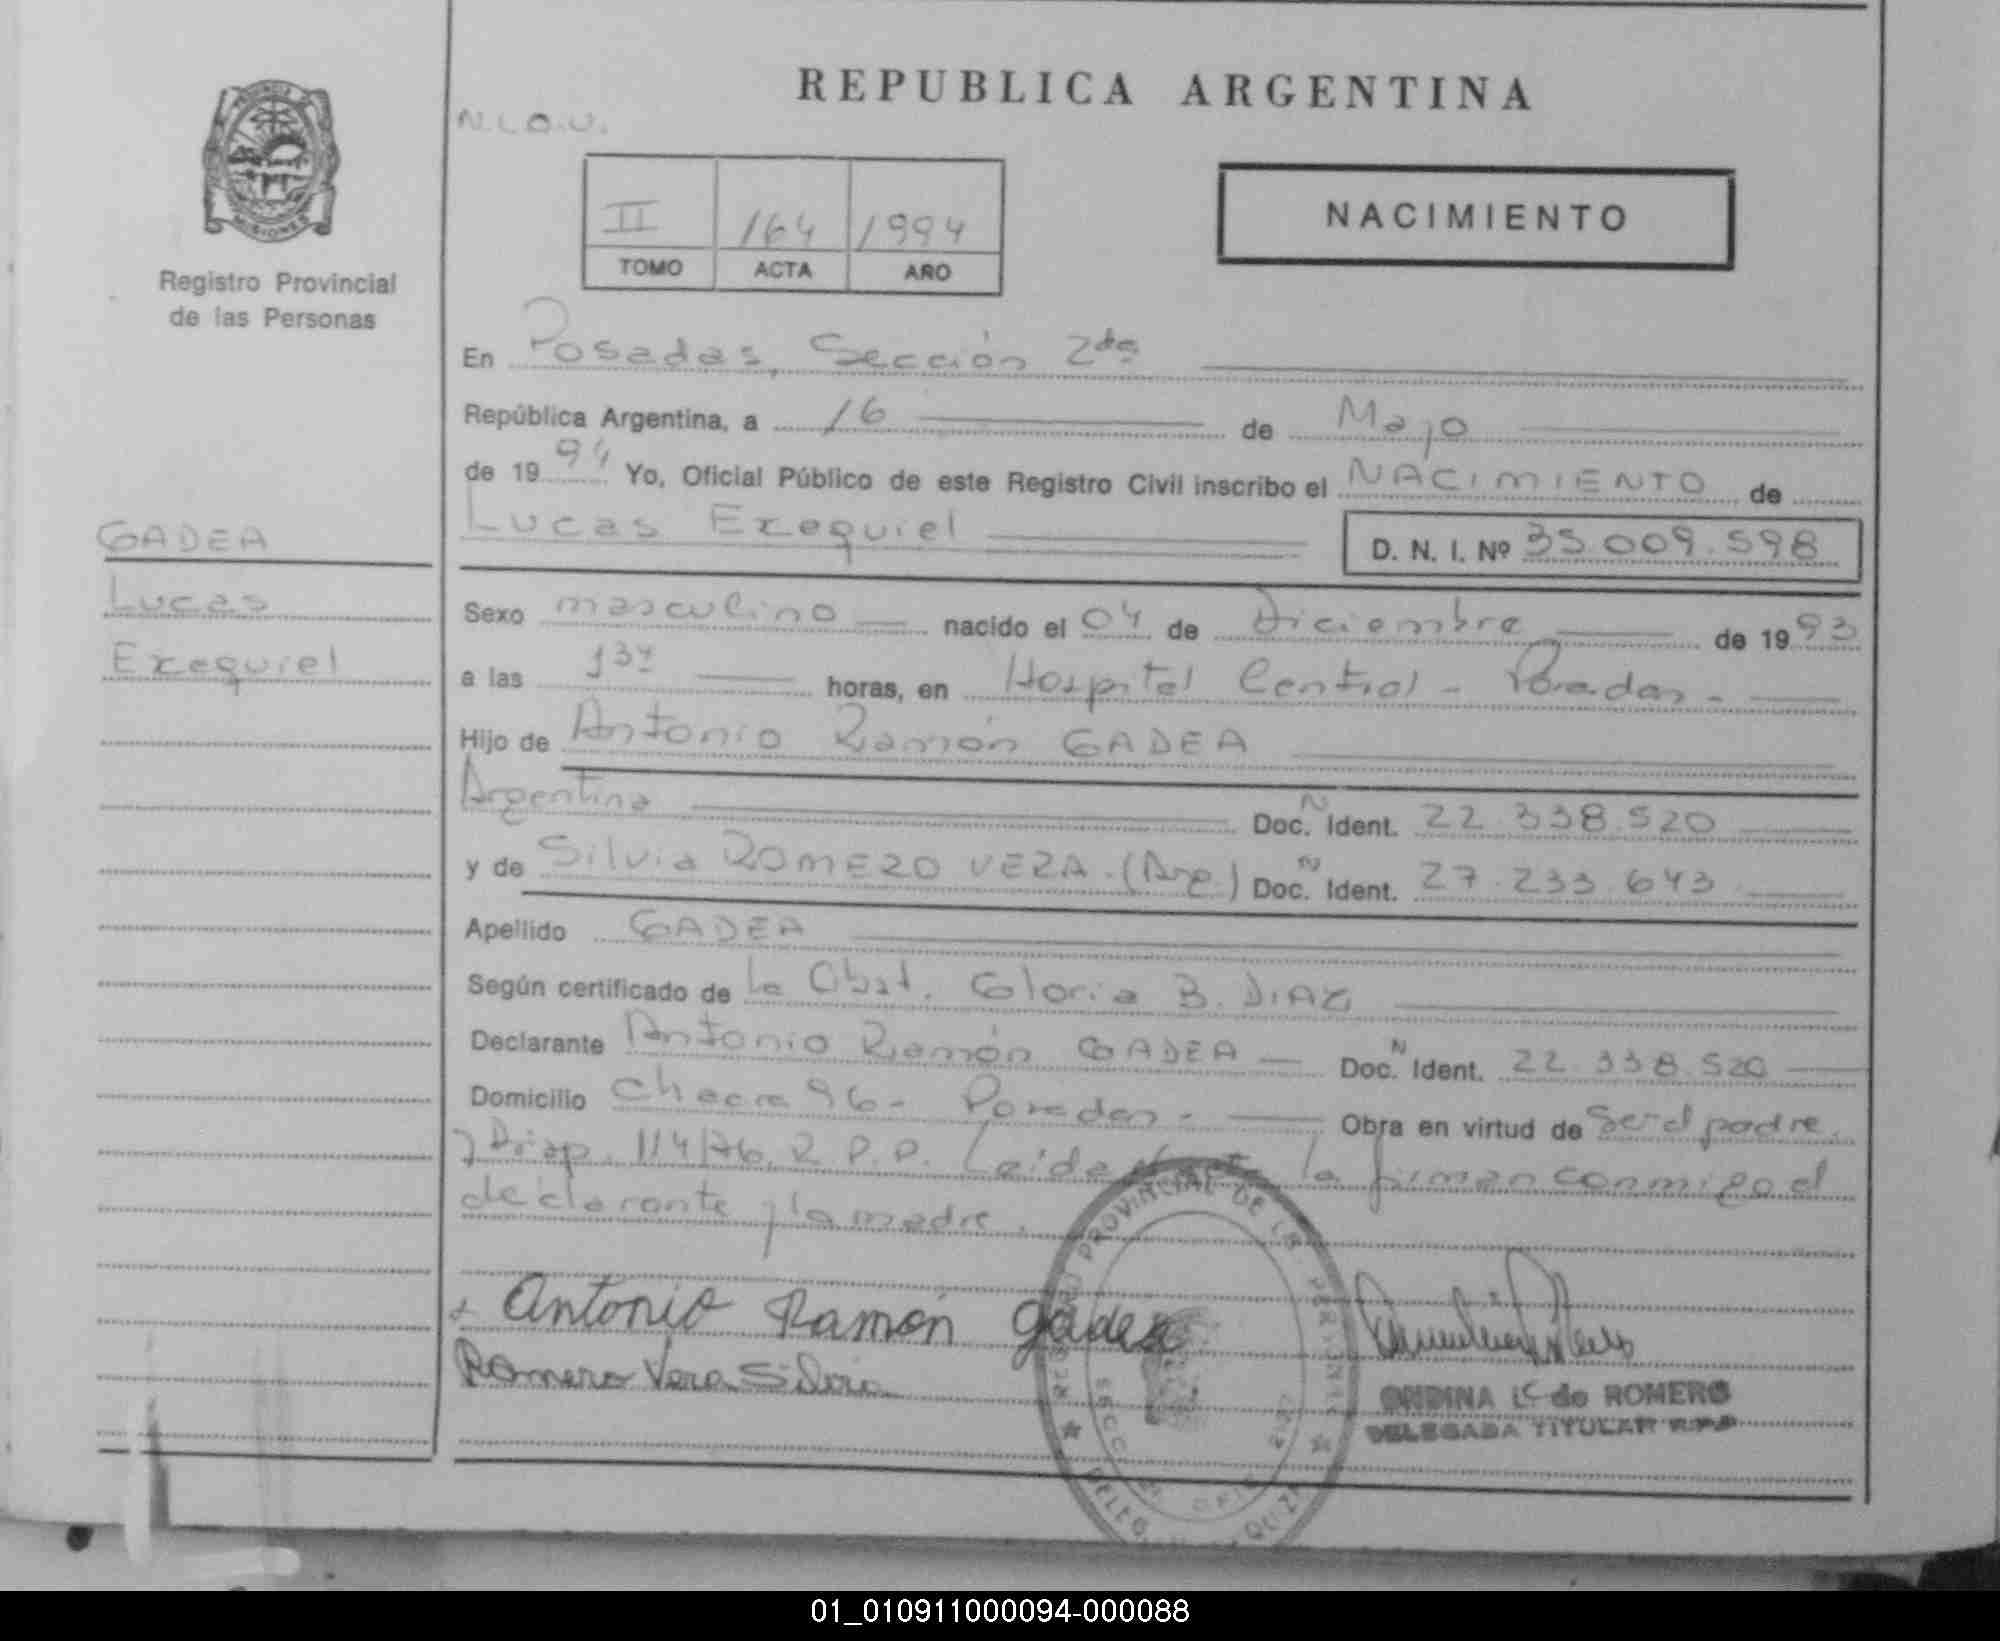 REPUBLICA ARGENTINA
PROVINCIA DE
MISIONES
Registro Provincial
de las Personas
N.L.O.V.
II 164 1994
TOMO ACTA AÑO
NACIMIENTO
En Posadas, Sección 2da
República Argentina, a 16 de Mayo
de 1994 Yo, Oficial Público de este Registro Civil inscribo el NACIMIENTO de
Lucas Exequiel D. N. I. Nº 35.009.598
GADEA
Lucas
Exequiel
Sexo masculino nacido el 04 de Diciembre de 1993
a las horas, en Hospital Central - Posadas -
Hijo de Antonio Ramón GADEA
Argentina Doc. N Ident. 22.338.520
y de Silvia ROMERO VERA. (Arg.) Doc. N Ident. 27.233.643
Apellido GADEA
Según certificado de la Obst. Gloria B. DIAZ
Declarante Antonio Ramón GADEA Doc. N Ident. 22.338.520
Domicilio Chacra 96 - Posadas - Obra en virtud de ser el padre
y Disp. 114/76. R.P.P. Leída el acta la firman conmigo el
declarante y la madre.
Antonio Ramón Gadea
Romero Vera Silvia
PROVINCIAL DE LAS PERSONAS
ONDINA L. C. de ROMERO
DELEGADA TITULAR R.P.P
01_010911000094-000088